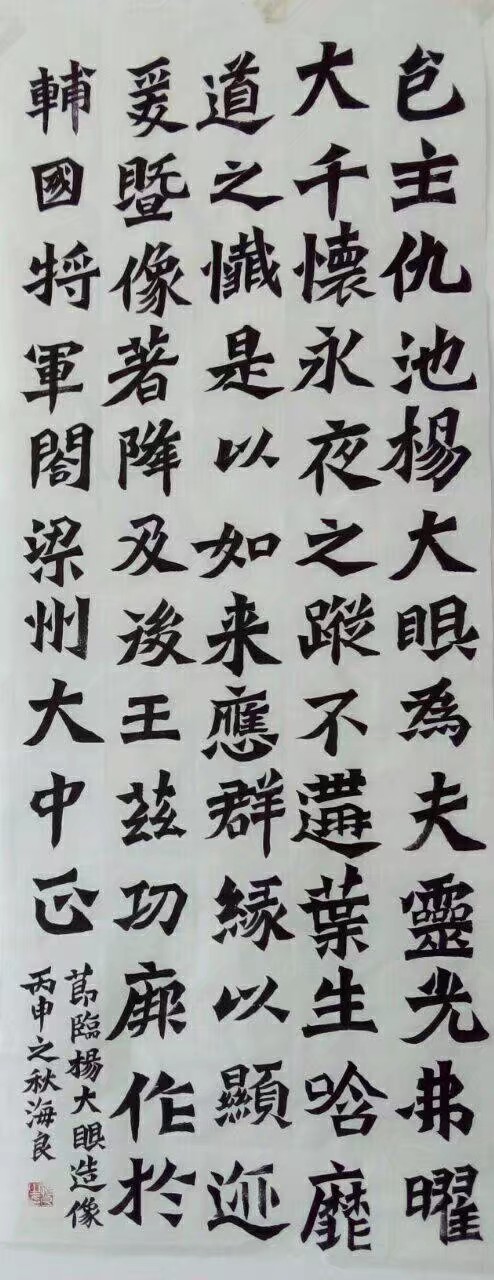 邑主仇池楊大眼為夫靈光弗曜
大千懷永夜之蹤不遘葉生唅靡
道之懺是以如来應群緣以顯迹
爰暨像著降及後王茲功厥作於
輔國將軍閤梁州大中正
莭臨楊大眼造像
丙申之秋海良